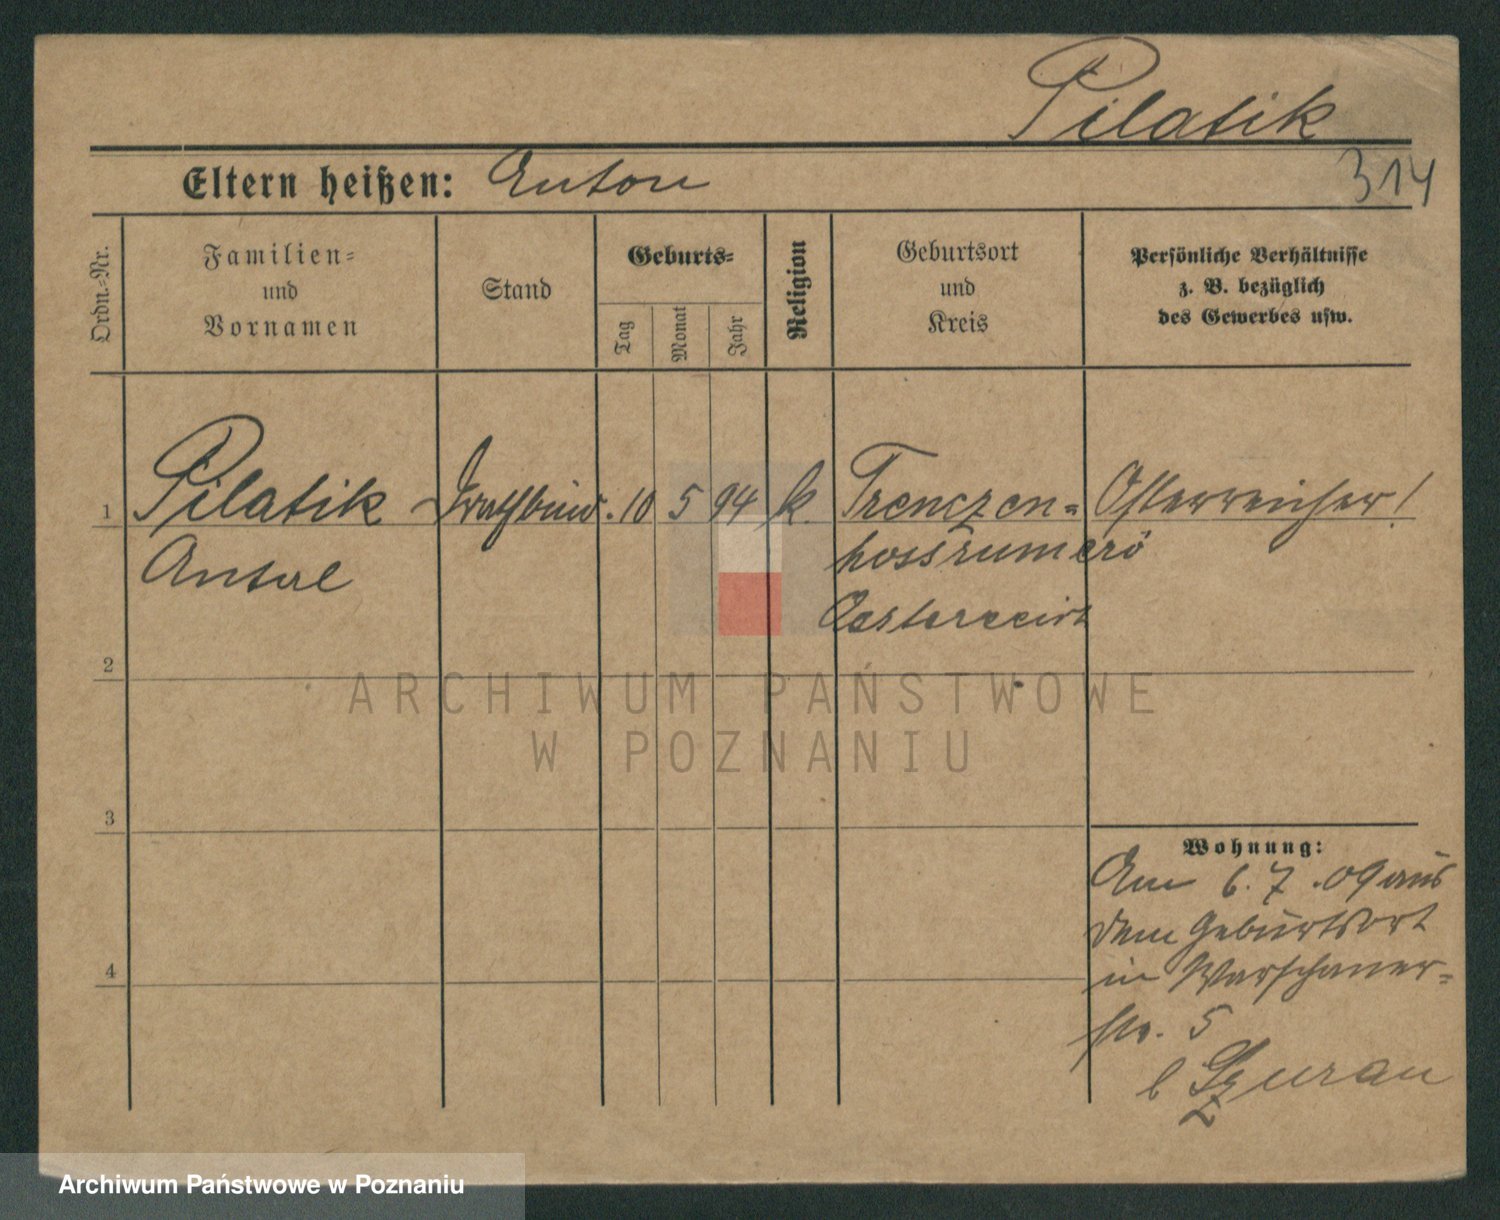 Pilatik
Eltern heißen: Anton
314
Ordn.-Nr.
Familien-
und
Vornamen
Stand
Geburts-
Tag
Monat
Jahr
Religion
Geburtsort
und
Kreis
Persönliche Verhältnisse
z. B. bezüglich
des Gewerbes usw.
1
Pilatik
Antal
Drathbind. 10 5 94 k.
Trenczen-
hosszumezö
Oesterreich
Österreicher!
2
3
4
Wohnung:
Am 6.7.09 aus
dem Geburtsort
in Warschauer-
str. 5
b Szuran
ARCHIWUM PAŃSTWOWE
W POZNANIU
Archiwum Państwowe w Poznaniu